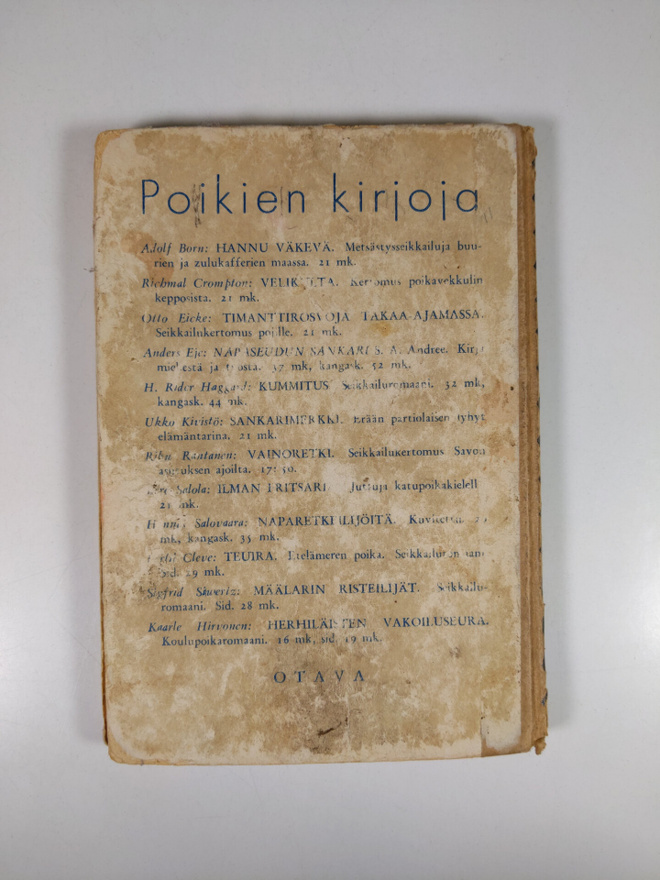 Poikien kirjoja
Adolf Born: HANNU VÄKEVÄ. Metsästysseikkailuja buu-
rien ja zulukafferien maassa. 21 mk.
Richmal Crompton: Kertomus poikavekkulin
kepposista. 21 mk.
Otto Eicke: TIMANTTIROSVOJA TAKAA-AJAMASSA.
Seikkailukertomus pojille. 21 mk.
Anders Eje: NAPASEUDUN SANKARI S. A. Andrée. Kirja
miehestä ja 37 mk, kangask. 52 mk.
H. Rider Haggard: KUMMITUS Seikkailuromaani. 32 mk,
kangask. 44 mk.
Ukko Kivistö: SANKARIMERKKI. Erään partiolaisen lyhyt
elämäntarina. 21 mk.
Rantanen: VAINORETKI. Seikkailukertomus Savon
asutuksen ajoilta. 17: 50.
Salola: ILMAN FRITSARI Juttuja katupoikakielellä
21 mk.
Hannu Salovaara: NAPARETKEILIJÖITÄ. Kuvitettu.
mk, kangask. 35 mk.
Cleve: TEUIRA. Etelämeren poika. Seikkailuromaani
Sid. 29 mk.
Sigfrid Siwertz: MÄÄLARIN RISTEILIJÄT. Seikkailu-
romaani. Sid. 28 mk.
Kaarle Hirvonen: HERHILÄISTEN VAKOILUSEURA.
Koulupoikaromaani. 16 mk, sid. 19 mk.
OTAVA